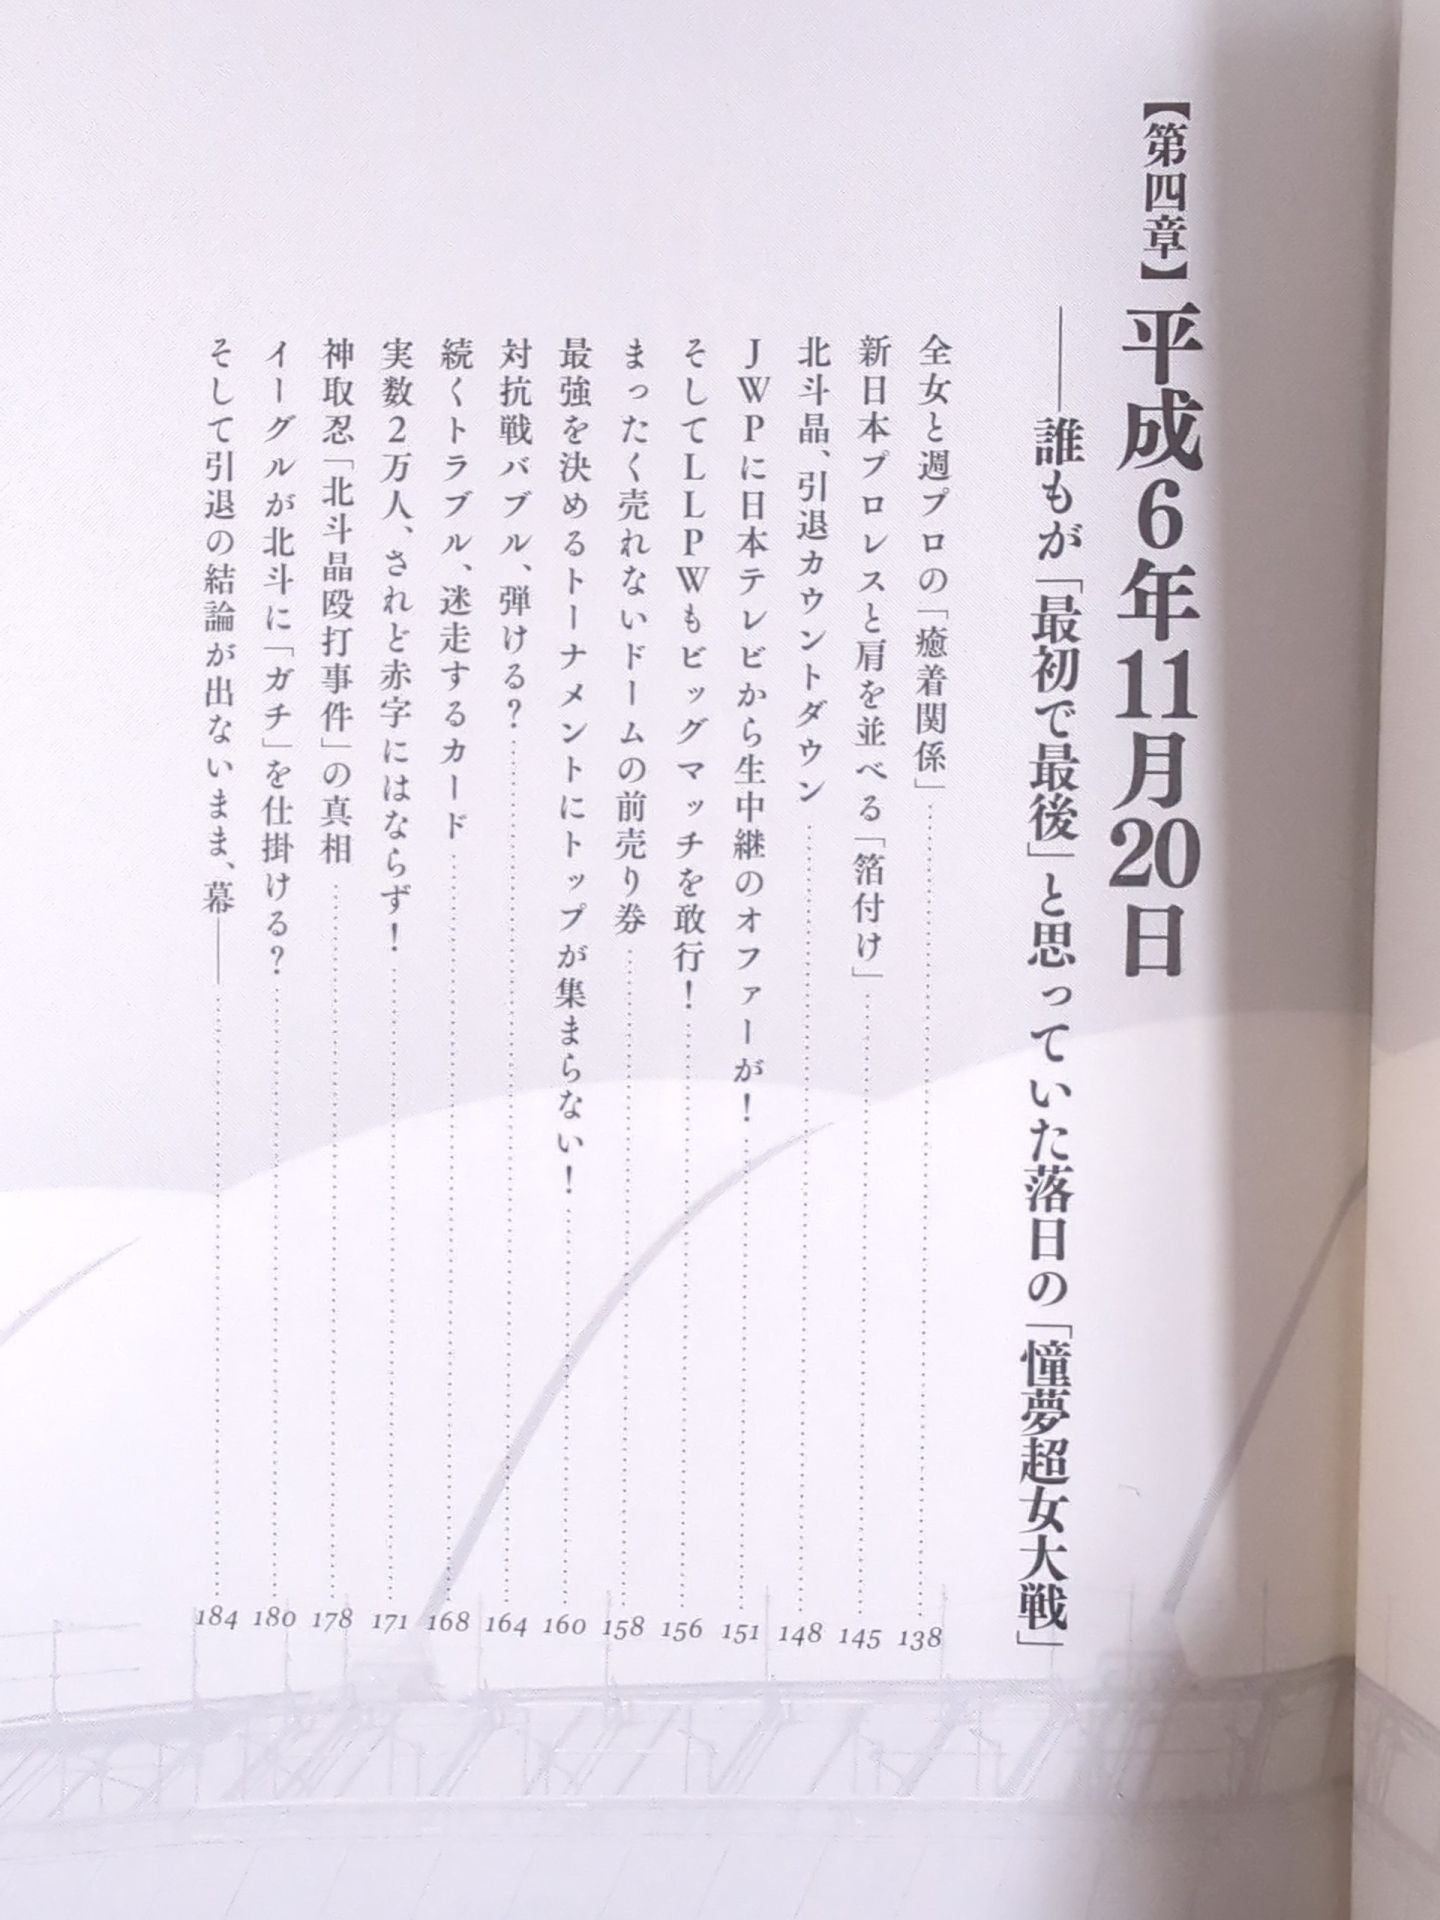 【第四章】平成6年11月20日
――誰もが「最初で最後」と思っていた落日の「憧夢超女大戦」
全女と週プロの「癒着関係」……138
新日本プロレスと肩を並べる「箔付け」……145
北斗晶、引退カウントダウン……148
JWPに日本テレビから生中継のオファーが！……151
そしてLLPWもビッグマッチを敢行！……156
まったく売れないドームの前売り券……158
最強を決めるトーナメントにトップが集まらない！……160
対抗戦バブル、弾ける？……164
続くトラブル、迷走するカード……168
実数2万人、されど赤字にはならず！……171
神取忍「北斗晶殴打事件」の真相……178
イーグルが北斗に「ガチ」を仕掛ける？……180
そして引退の結論が出ないまま、幕――……184